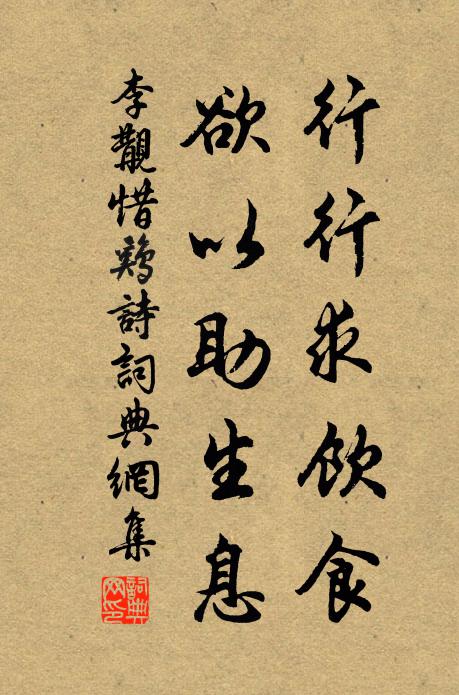 行行求飲食
欲以助生息
李覯惜鷄詩詞典網集
詞典網印